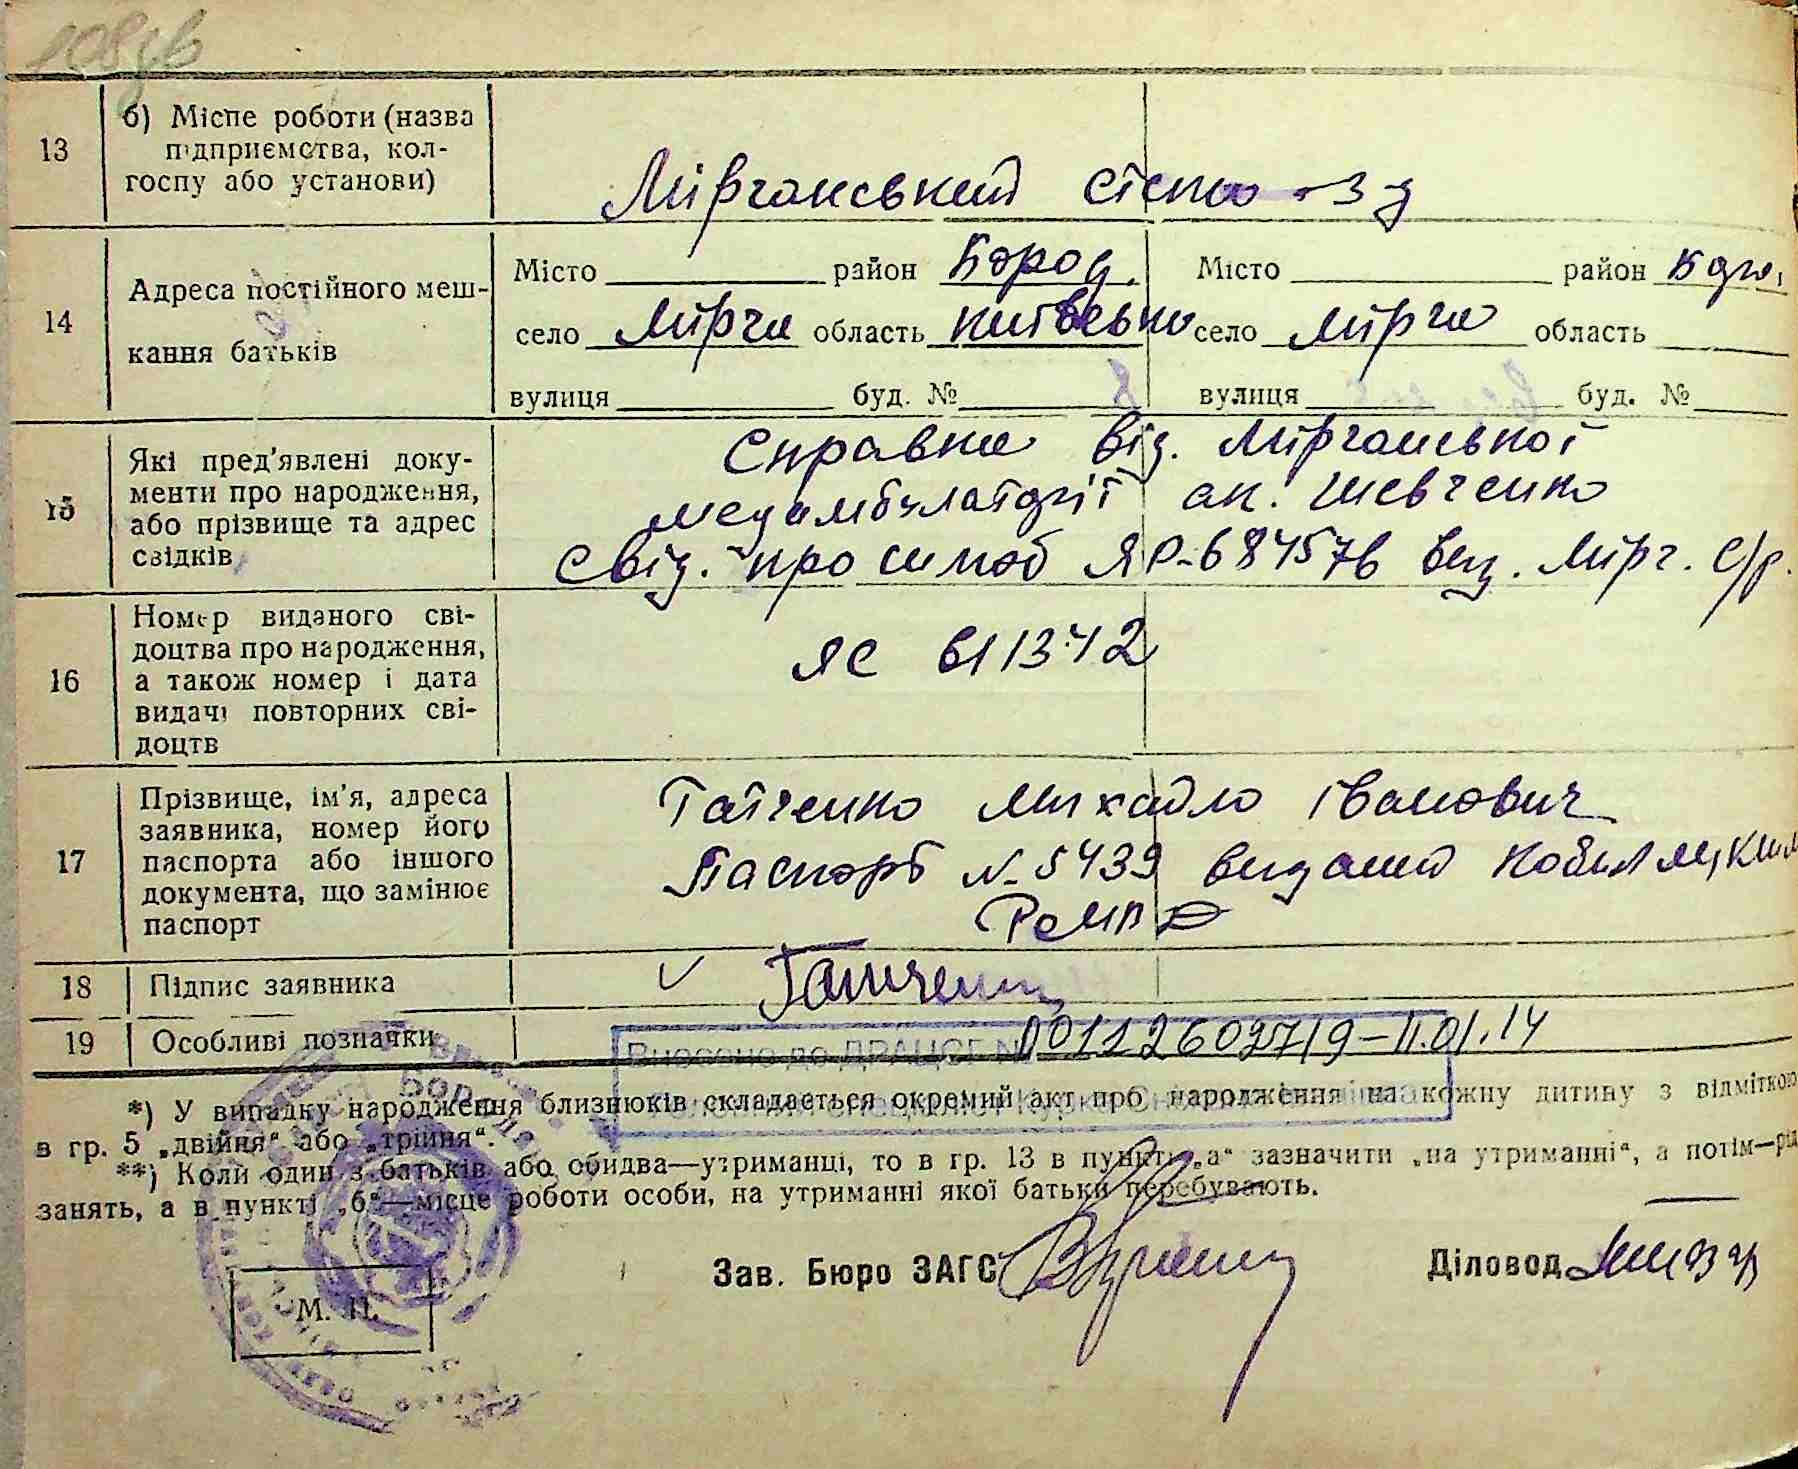 108 зв
13
б) Місце роботи (назва
підприємства, кол-
госпу або установи)
Мірчанський
14
Адреса постійного меш-
кання батьків
Місто район Бород.
село Мірча область Київська
вулиця буд. №
Місто район Бор.
село Мірча область
вулиця буд. №
15
Які пред'явлені доку-
менти про народження,
або прізвище та адрес
свідків
Справка від. Мірчанської
медамбулаторії ак. Шевченко
Свід. про шлюб ЯР-684576 вид. Мірч. с/р.
16
Номер виданого сві-
доцтва про народження,
а також номер і дата
видачі повторних сві-
доцтв
ЯС 611342
17
Прізвище, ім'я, адреса
заявника, номер його
паспорта або іншого
документа, що замінює
паспорт
Гатченко Михайло Іванович
Паспорт № 5439 виданий Кобиляцким
18
Підпис заявника
Гатченко
19
Особливі позначки
Внесено до ДРАЦСГ № 00112609719–11.01.14
*) У випадку народження близнюків складається окремий акт про народження на кожну дитину з відміткою
в гр. 5 „двійня“ або „трійня“.
**) Коли один з батьків або обидва—утриманці, то в гр. 13 в пункті „а“ зазначити „на утриманні“, а потім—рід
занять, а в пункті „б“—місце роботи особи, на утриманні якої батьки перебувають.
Зав. Бюро ЗАГС
Діловод
М. П.